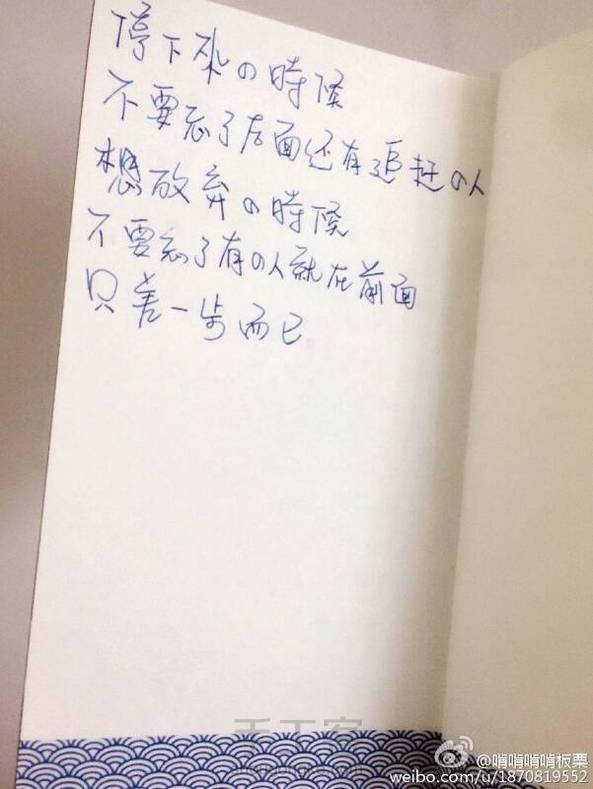 停下来の時候
不要忘了后面还有追赶の人
想放弃の時候
不要忘了有の人就在前面
只差一步而已
手工客
@啃啃啃啃板栗
weibo.com/u/1870819552